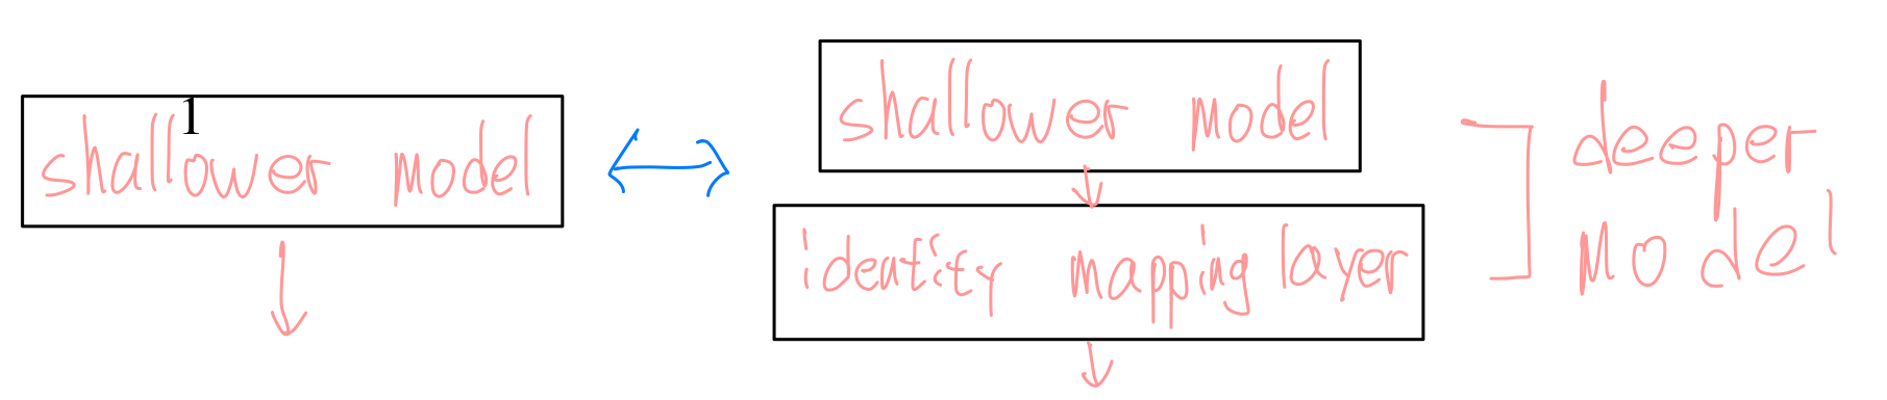 1
shallower model
shallower model
identity mapping layer
deeper
model